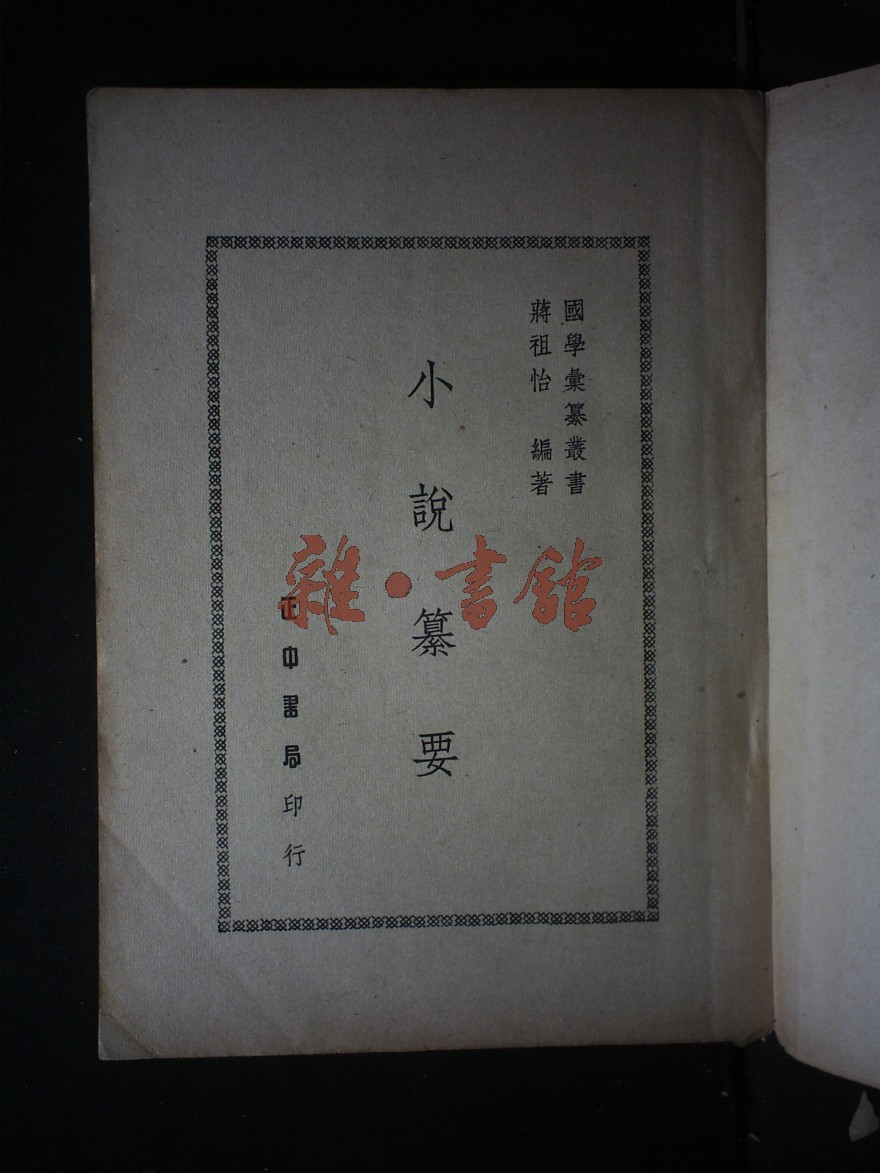 國學彙纂叢書
蔣祖怡 編著
小說纂要
正中書局印行
雜·書館